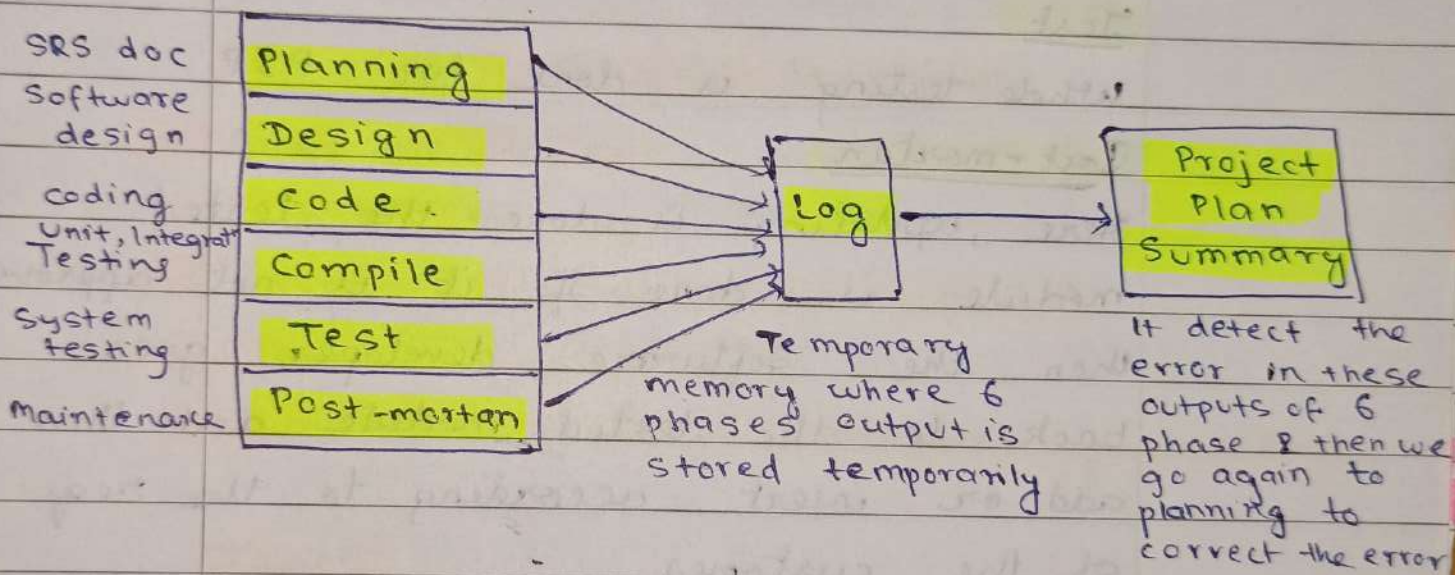 SRS doc
Software
design
coding
Unit, Integrat
Testing
System
testing
Maintenance
Planning
Design
Code.
Compile
Test
Post-mortan
Log
Temporary
memory where 6
phases output is
stored temporarily
Project
Plan
Summary
It detect the
error in these
outputs of 6
phase & then we
go again to
planning to
correct the error